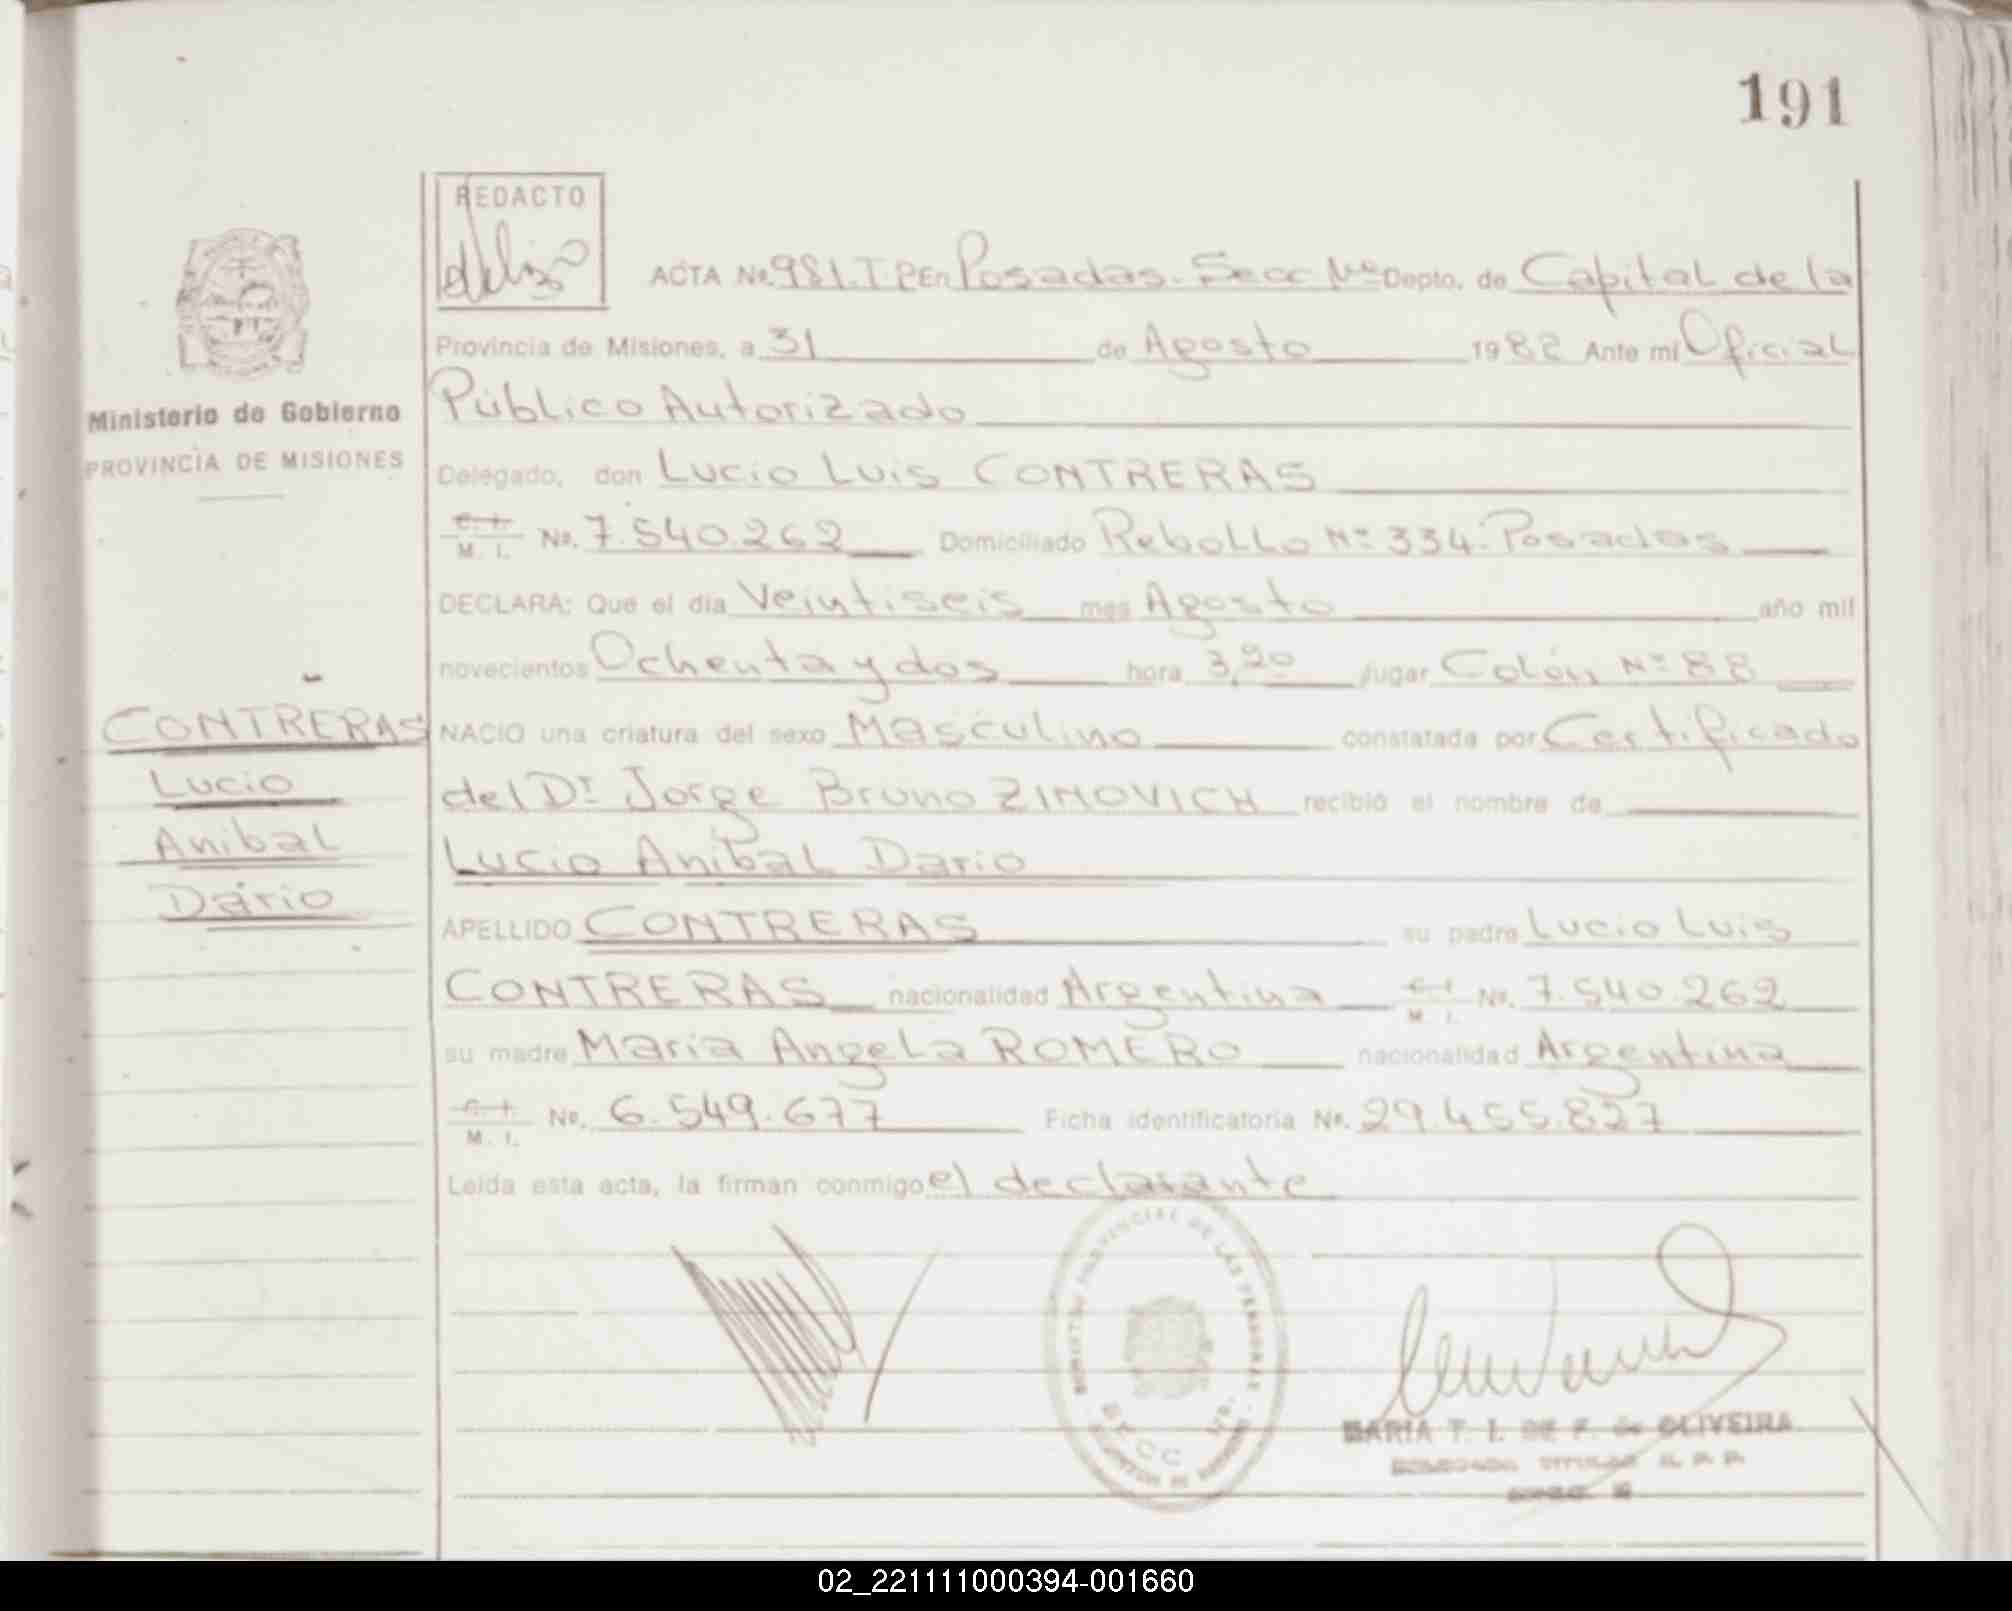 191
REDACTO
ACTA No. 981.T.P En Posadas. Secc Depto. de Capital de la
Provincia de Misiones, a 31 de Agosto 1982 Ante mi Oficial
Ministerio de Gobierno
Público Autorizado
PROVINCIA DE MISIONES
Delegado, don Lucio Luis CONTRERAS
C. I. M. I. No. 7.540.262 Domiciliado Rebollo Nº 334. Posadas
DECLARA: Que el día Veintiseis mes Agosto año mil
novecientos Ochenta y dos hora 3,20 lugar Colón Nº 88
CONTRERAS
Lucio
Anibal
Dario
NACIO una criatura del sexo Masculino constatada por Certificado
del Dr Jorge Bruno ZIMOVICH recibió el nombre de
Lucio Anibal Dario
APELLIDO CONTRERAS su padre Lucio Luis
CONTRERAS nacionalidad Argentina C. I. M. I. No. 7.540.262
su madre Maria Angela ROMERO nacionalidad Argentina
C. I. M. I. No. 6.549.677 Ficha identificatoria No. 29.455.827
Leída esta acta, la firman conmigo el declarante
PROVINCIAL DE LAS PERSONAS
MARIA T. I. DE F. de OLIVEIRA
TITULAR R. P. P.
02_221111000394-001660